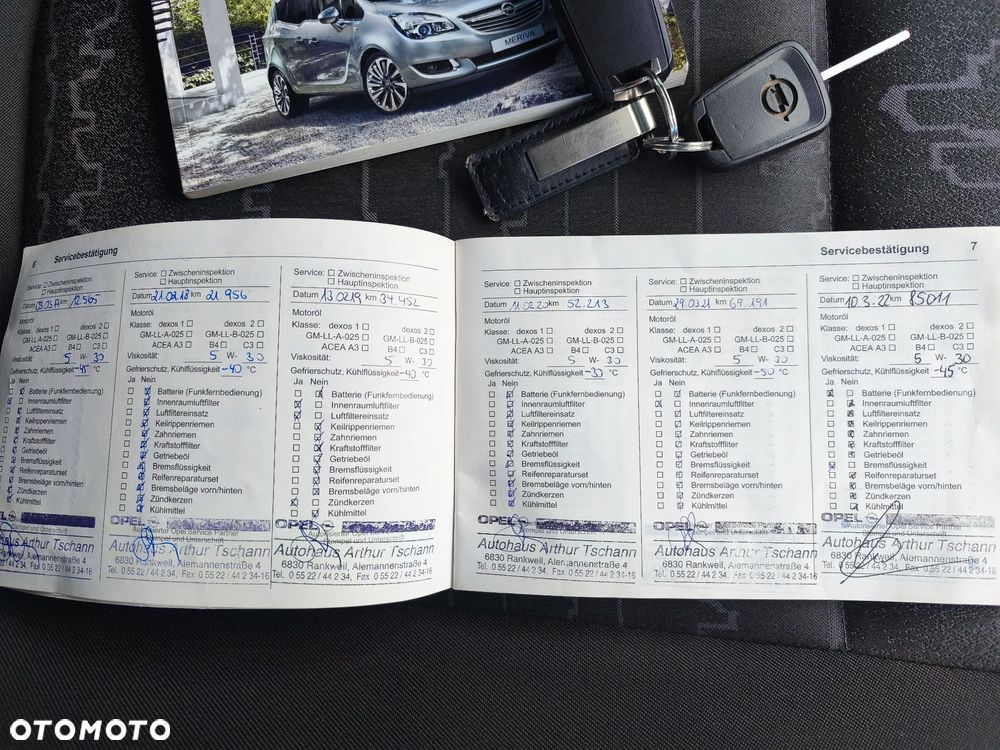 MERIVA
6 Servicebestätigung
Service: Zwischeninspektion
Hauptinspektion
Datum km 12565
Motoröl
Klasse: dexos 1 dexos 2
GM-LL-A-025 GM-LL-B-025
ACEA A3 B4 C3
Viskosität: 5 W- 30
Gefrierschutz, Kühlflüssigkeit -45 °C
Ja Nein
Batterie (Funkfernbedienung)
Innenraumluftfilter
Luftfiltereinsatz
Keilrippenriemen
Zahnriemen
Kraftstofffilter
Getriebeöl
Bremsflüssigkeit
Reifenreparaturset
Bremsbeläge vorn/hinten
Zündkerzen
Kühlmittel
OPEL
Autohaus Arthur Tschann
6830 Rankweil, Alemannenstraße 4
Service: Zwischeninspektion
Hauptinspektion
Datum 21.02.18 km 21.956
Motoröl
Klasse: dexos 1 dexos 2
GM-LL-A-025 GM-LL-B-025
ACEA A3 B4 C3
Viskosität: 5 W- 30
Gefrierschutz, Kühlflüssigkeit -40 °C
Ja Nein
Batterie (Funkfernbedienung)
Innenraumluftfilter
Luftfiltereinsatz
Keilrippenriemen
Zahnriemen
Kraftstofffilter
Getriebeöl
Bremsflüssigkeit
Reifenreparaturset
Bremsbeläge vorn/hinten
Zündkerzen
Kühlmittel
Autorisierter Opel Service Partner
Stempel und Unterschrift
Autohaus Arthur Tschann
6830 Rankweil, Alemannenstraße 4
Tel. 0 55 22 / 44 2 34, Fax 0 55 22 / 44 2 34-16
Service: Zwischeninspektion
Hauptinspektion
Datum 13.02.19 km 34.452
Motoröl
Klasse: dexos 1 dexos 2
GM-LL-A-025 GM-LL-B-025
ACEA A3 B4 C3
Viskosität: 5 W- 30
Gefrierschutz, Kühlflüssigkeit -40 °C
Ja Nein
Batterie (Funkfernbedienung)
Innenraumluftfilter
Luftfiltereinsatz
Keilrippenriemen
Zahnriemen
Kraftstofffilter
Getriebeöl
Bremsflüssigkeit
Reifenreparaturset
Bremsbeläge vorn/hinten
Zündkerzen
Kühlmittel
OPEL
Autorisierter Opel Service Partner
Stempel und Unterschrift
Autohaus Arthur Tschann
6830 Rankweil, Alemannenstraße 4
Tel. 0 55 22 / 44 2 34, Fax 0 55 22 / 44 2 34-16
Servicebestätigung 7
Service: Zwischeninspektion
Hauptinspektion
Datum 11.02.20 km 52.213
Motoröl
Klasse: dexos 1 dexos 2
GM-LL-A-025 GM-LL-B-025
ACEA A3 B4 C3
Viskosität: 5 W- 30
Gefrierschutz, Kühlflüssigkeit -30 °C
Ja Nein
Batterie (Funkfernbedienung)
Innenraumluftfilter
Luftfiltereinsatz
Keilrippenriemen
Zahnriemen
Kraftstofffilter
Getriebeöl
Bremsflüssigkeit
Reifenreparaturset
Bremsbeläge vorn/hinten
Zündkerzen
Kühlmittel
OPEL
Autohaus Arthur Tschann
6830 Rankweil, Alemannenstraße 4
Tel. 0 55 22 / 44 2 34, Fax 0 55 22 / 44 2 34-16
Service: Zwischeninspektion
Hauptinspektion
Datum 29.03.21 km 69.191
Motoröl
Klasse: dexos 1 dexos 2
GM-LL-A-025 GM-LL-B-025
ACEA A3 B4 C3
Viskosität: 5 W- 30
Gefrierschutz, Kühlflüssigkeit -50 °C
Ja Nein
Batterie (Funkfernbedienung)
Innenraumluftfilter
Luftfiltereinsatz
Keilrippenriemen
Zahnriemen
Kraftstofffilter
Getriebeöl
Bremsflüssigkeit
Reifenreparaturset
Bremsbeläge vorn/hinten
Zündkerzen
Kühlmittel
OPEL
Autohaus Arthur Tschann
6830 Rankweil, Alemannenstraße 4
Tel. 0 55 22 / 44 2 34, Fax 0 55 22 / 44 2 34-16
Service: Zwischeninspektion
Hauptinspektion
Datum 10.3.22 km 85011
Motoröl
Klasse: dexos 1 dexos 2
GM-LL-A-025 GM-LL-B-025
ACEA A3 B4 C3
Viskosität: 5 W- 30
Gefrierschutz, Kühlflüssigkeit -45 °C
Ja Nein
Batterie (Funkfernbedienung)
Innenraumluftfilter
Luftfiltereinsatz
Keilrippenriemen
Zahnriemen
Kraftstofffilter
Getriebeöl
Bremsflüssigkeit
Reifenreparaturset
Bremsbeläge vorn/hinten
Zündkerzen
Kühlmittel
OPEL
Autorisierter Opel Service Partner
Autohaus Arthur Tschann
6830 Rankweil, Alemannenstraße 4
Tel. 0 55 22 / 44 2 34, Fax 0 55 22 / 44 2 34-16
OTOMOTO